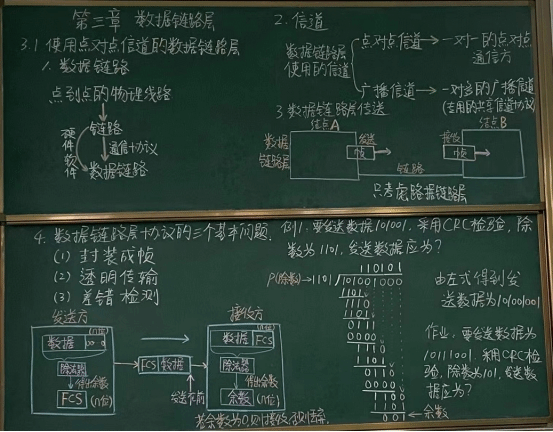 第三章 数据链路层
3.1 使用点对点信道的数据链路层
1. 数据链路
点到点的物理线路
链路
硬件
软件
通信协议
数据链路
2. 信道
数据链路层
使用的信道
点对点信道→一对一的点对点
通信方
广播信道→一对多的广播信道
(专用的共享信道协议)
3 数据链路层传送
结点A
结点B
数据
链路层
发送
帧
接收
帧
链路
只考虑数据链路层
4. 数据链路层协议的三个基本问题.
(1) 封装成帧
(2) 透明传输
(3) 差错检测
发送方
数据
00…0
(n位)
除法器
得出余数
FCS
(n位)
FCS 数据
发送在前
接收方
(n位)
数据 FCS
除法器
得出余数
余数
(n位)
若余数为0则接收
例1. 要发送数据101001, 采用CRC检验, 除
数为1101, 发送数据应为?
110101
P(除数)→1101
101001000
1101
1110
1101
0111
0000
1110
1101
0110
0000
1100
1101
001←余数
由左式得到发
送数据为101001001
作业, 要发送数据为
10111001, 采用CRC检
验, 除数为101, 发送数
据应为?